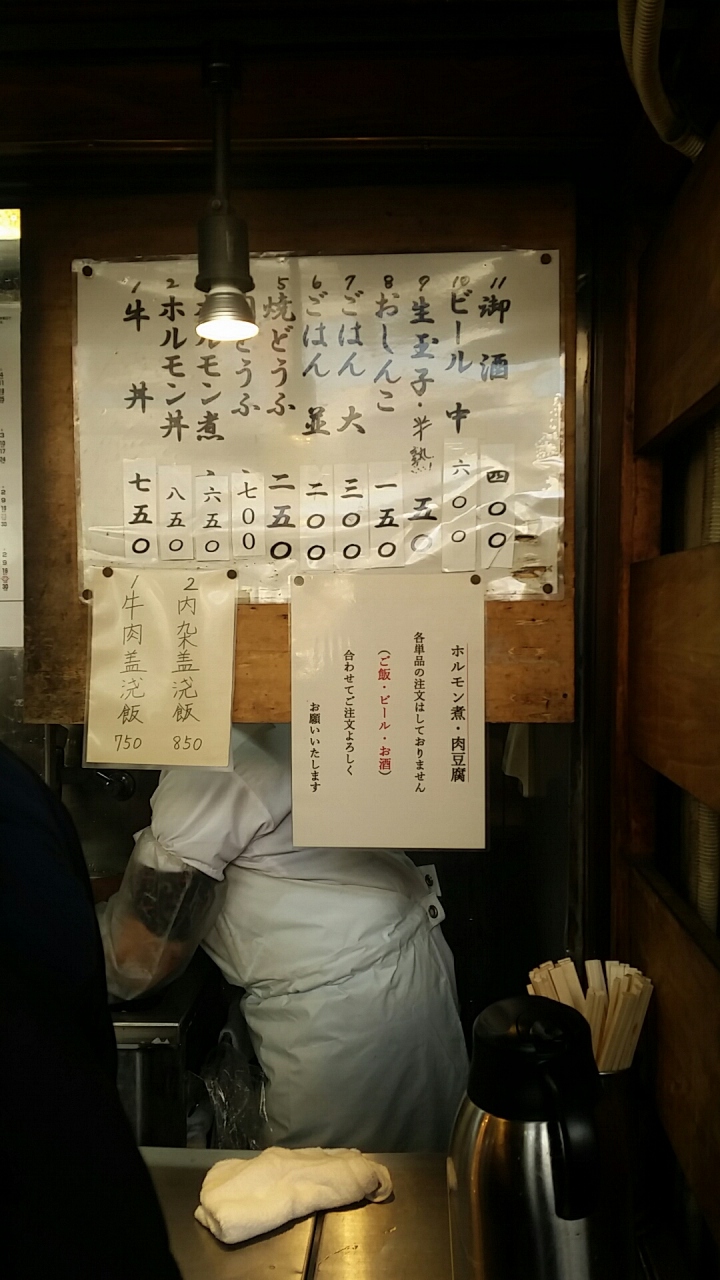 11 御酒 四〇〇
10 ビール 中 六〇〇
9 生玉子・半熟 五〇
8 おしんこ 一五〇
7 ごはん 大 三〇〇
6 ごはん 並 二〇〇
5 焼どうふ 二五〇
とうふ 七〇〇
ルモン煮 六五〇
2 ホルモン丼 八五〇
1 牛丼 七五〇
2 内杂盖浇飯 850
1 牛肉盖浇飯 750
ホルモン煮・肉豆腐
各単品の注文はしておりません
(ご飯・ビール・お酒)
合わせてご注文よろしく
お願いいたします